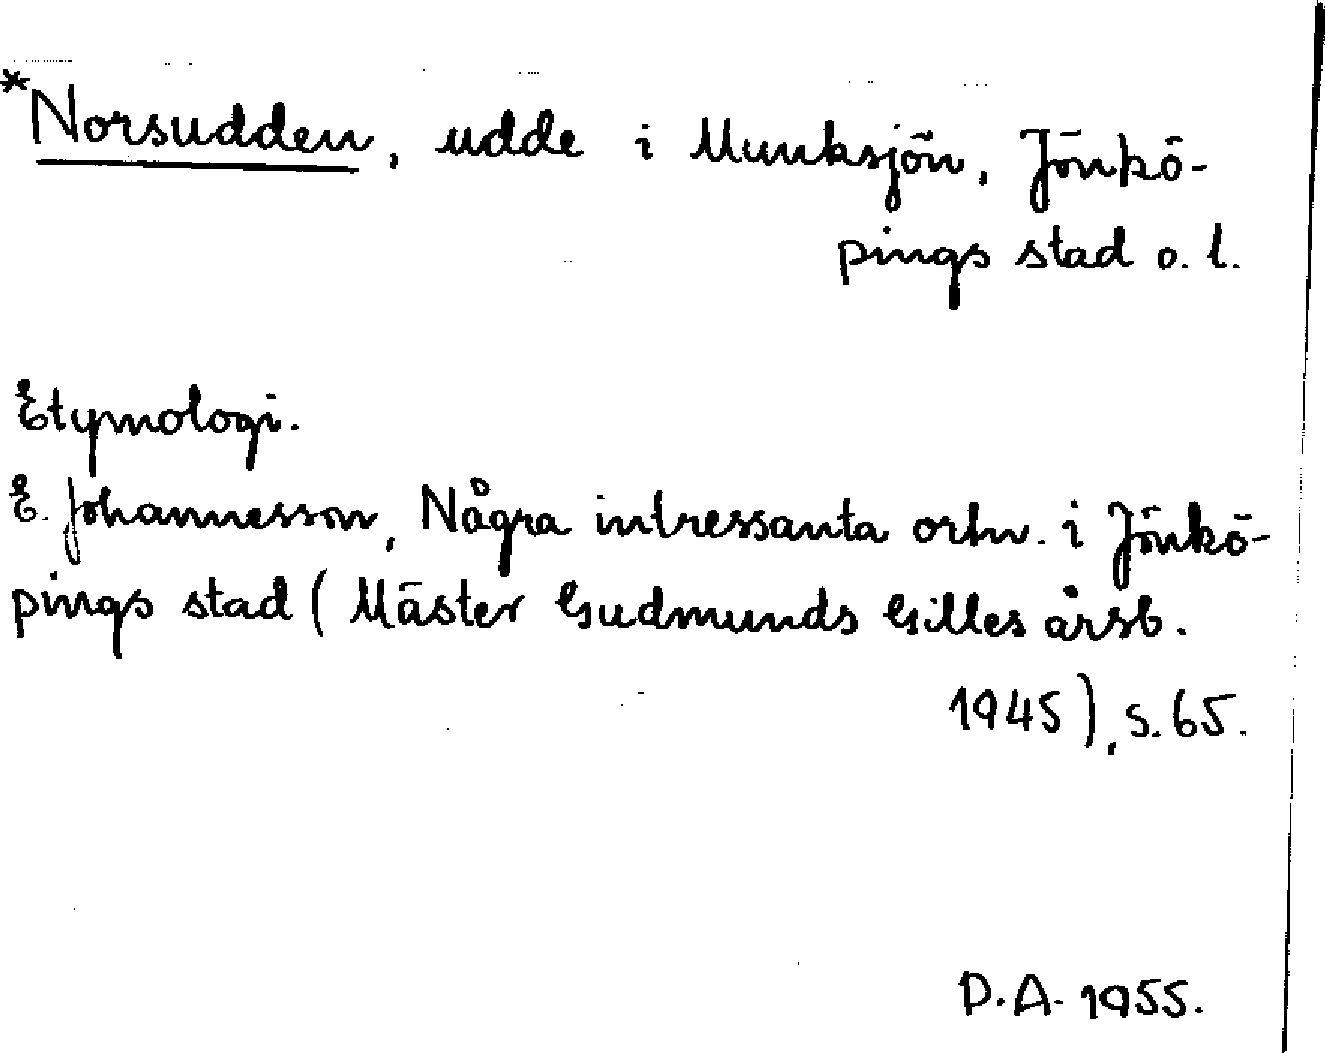 *Norsudden, udde i Munksjön, Jönkö-
pings stad o. l.
Etymologi.
E. Johannesson, Några intressanta ortn. i Jönkö-
pings stad (Mäster Gudmunds Gilles årsb.
1945), s. 65.
D.A. 1955.